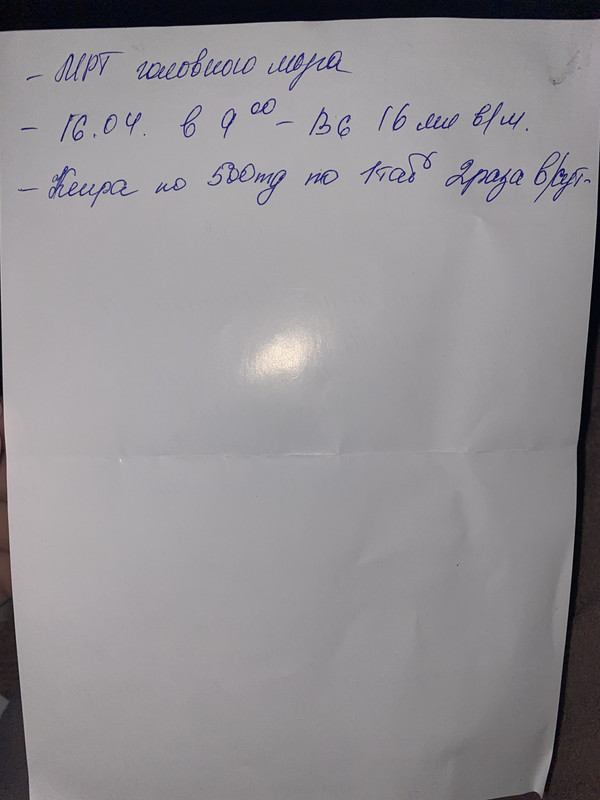 - МРТ головного мозга
- 16.04. в 9⁰⁰ - B6 16 мл в/м.
- Кепра по 500mg по 1таб 2раза в/сут-